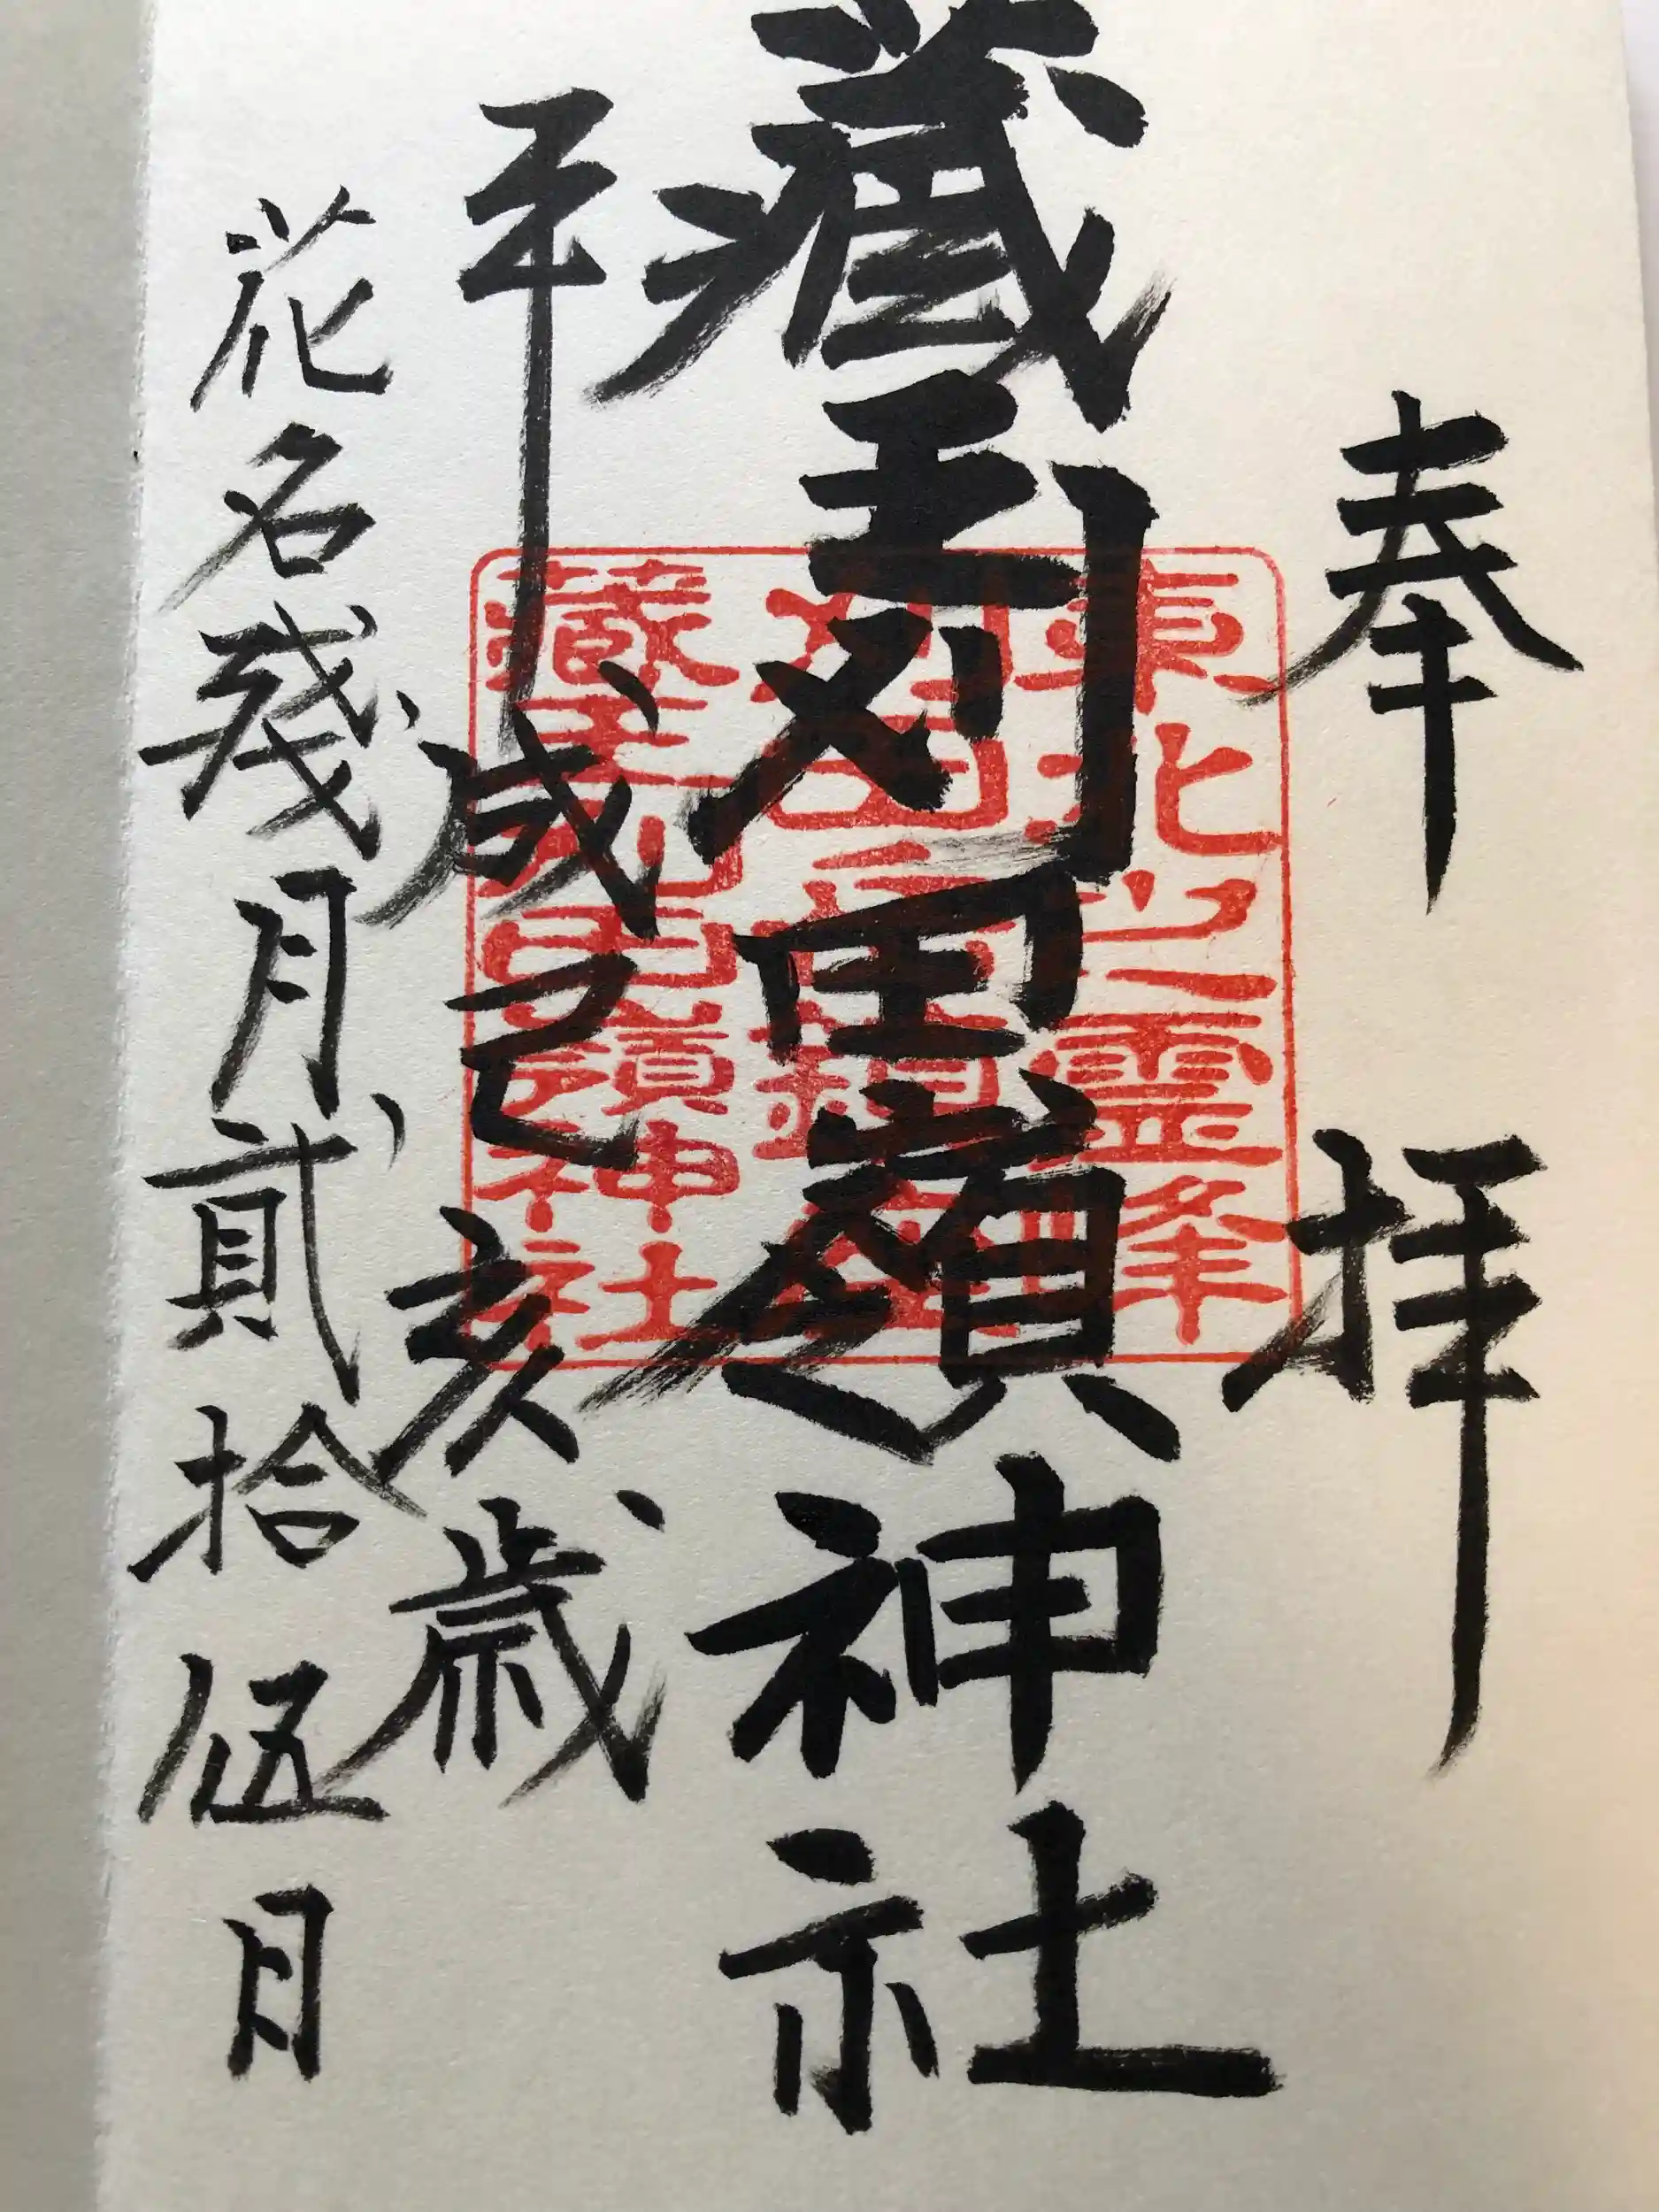 奉拝
藏王刈田嶺神社
平成己亥歳
花名殘月貳拾伍日
東北之霊峯
藏王刈田嶺神社